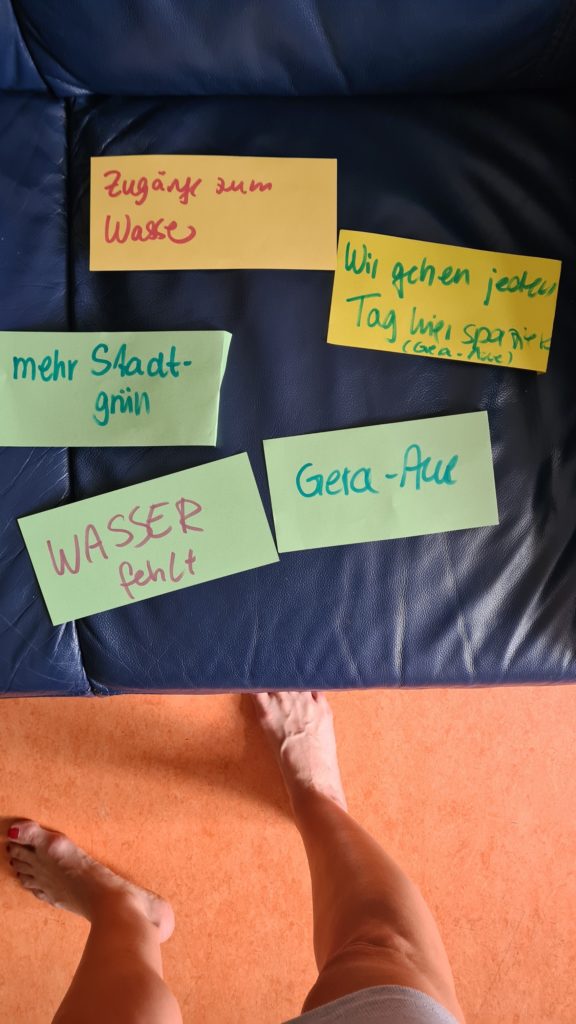 Zugänge zum
Wasser
Wir gehen jeden
Tag hier spazieren
(Gera-Aue)
mehr Stadt-
grün
Gera-Aue
WASSER
fehlt